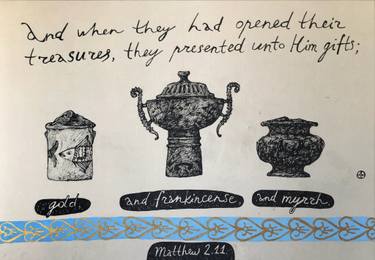 and when they had opened their
treasures, they presented unto Him gifts;
gold.
and frankincense
and myrrh.
Matthew 2.11.